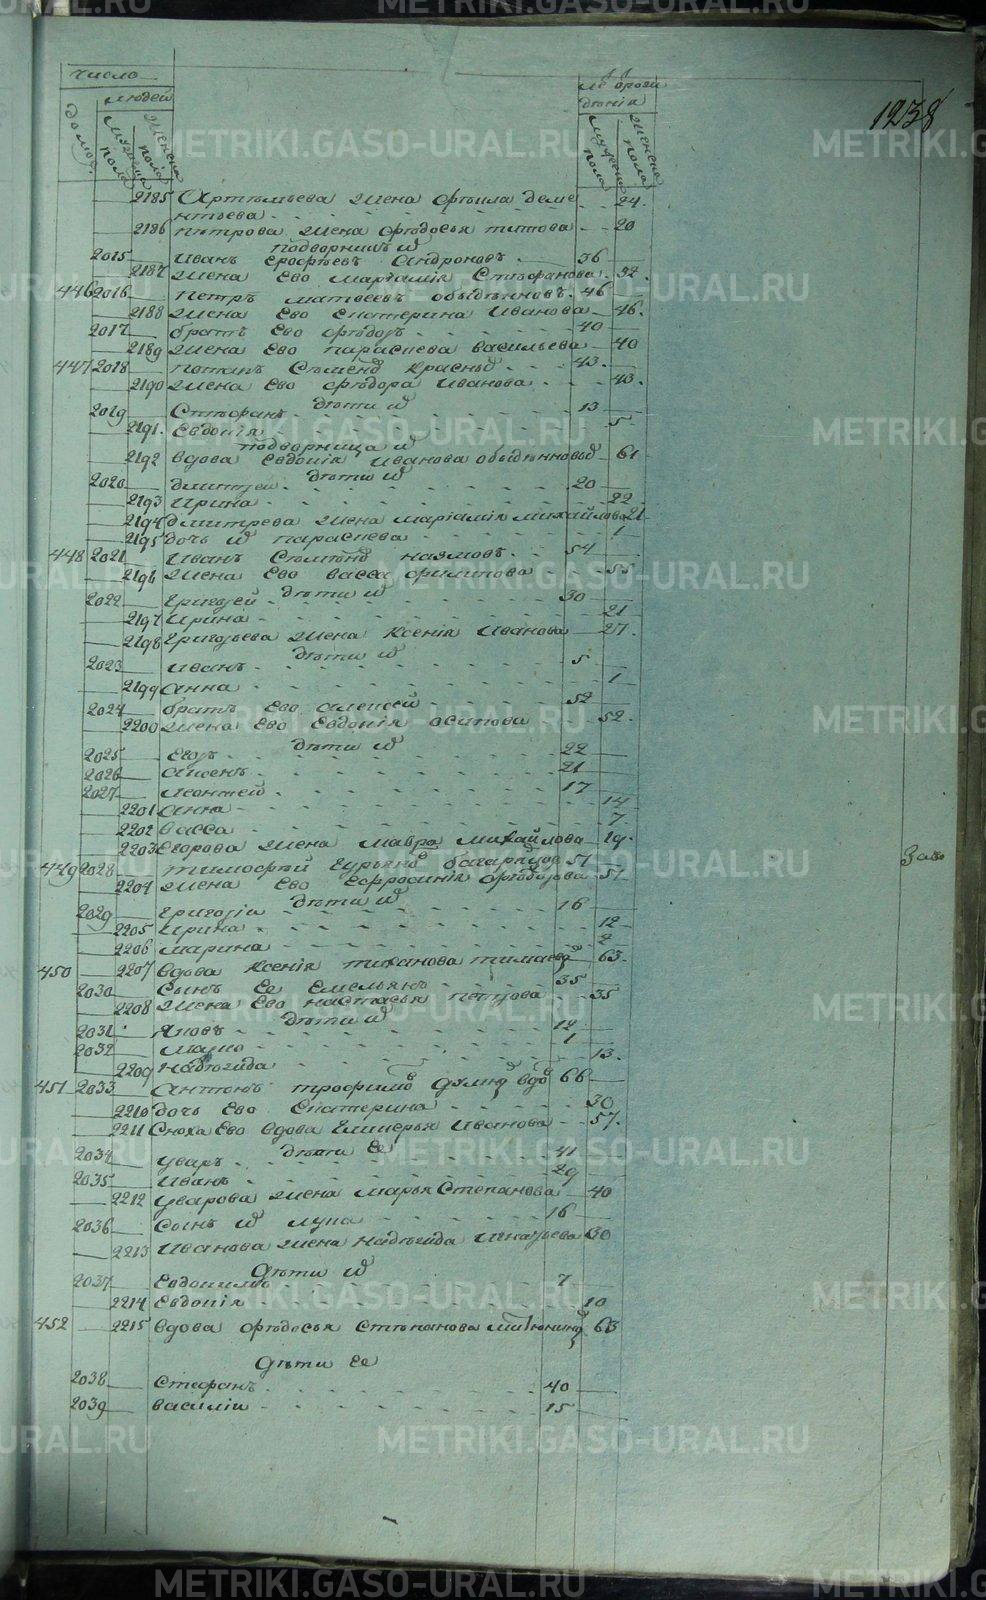 число
людей
домов.
мужеска пола
женска пола
лѣ
рожденія
мужеска пола
женска пола
1238
2185 Артемьева жена Ѳекла деме 24.
нтьева
2186 петрова жена Ѳедосья титова 20
подворникъ
2015 Иванъ Ерофѣевъ Андроновъ 36
2187 жена Ево маріамія Стефанова 32.
446 2016 петръ матвеевъ обыдѣнновъ. 46
2188 жена Ево Екатерина Иванова 46.
2017 братъ Ево Ѳедоръ 40
2189 жена Ево параскева васильева 40
447 2018 потапъ Семенъ Красны 43.
2190 жена Ево Ѳедора Иванова 43.
дѣти
2019 Стефанъ 13
2191. Евдокія 5
подворница
2192 вдова Евдокія Иванова обыдѣннова 61
дѣти
2020 дмитреи 20
2193 Ирина 22
2194 дмитрева жена маріамія михайлова 21
2195 дочь параскева 1
448 2021 Иванъ наумовъ 54
2196 жена Ево васса филипова 55
дѣти
2022 Григорей 30
2197 Ирина 21
2198 Григорьева жена Ксенія Иванова 27.
дѣти
2023 Иванъ 5
2199 Анна 1
2024 братъ Ево алексей 52
2200 жена Ево Евдокія осипова 52.
дѣти
2025 Егоръ 22
2026 21
2027 леонтей 17
2201 Анна 14
2202 васса 7
2203 Егорова жена мавра михайлова 19.
449 2028 тимофей Гурьянъ 51
2204 жена Ево Ефросинія Ѳедорова 51
Зав
дѣти
2029 Григоріи 16
2205 Ирина 12
2206 марина 2
450 2207 вдова Ксенія тиханова 63.
2030 Сынъ Ее Емельянъ 35
2208 жена Ево настасья петрова 35
дѣти
2031 Яковъ 12
2032 марко 1
2209 надежида 13.
451 2033 Антонъ трофимовъ вдовъ 66
2210 дочь Ево Екатерина 30
2211 Сноха Ево вдова Гликерья Иванова 57.
дѣти Ее
2034 Уваръ 41
2035 Иванъ 29
2212 Уварова жена марья Степанова 40
2036 Сынъ лука 16
2213 Иванова жена надежида Игнатьева 30
дѣти
2037 Евдокимъ 7
2214 Евдокія 10
452 2215 вдова Ѳедосья Степанова 63
дѣти Ее
2038 Стефанъ 40
2039 василіи 15
METRIKI.GASO-URAL.RU